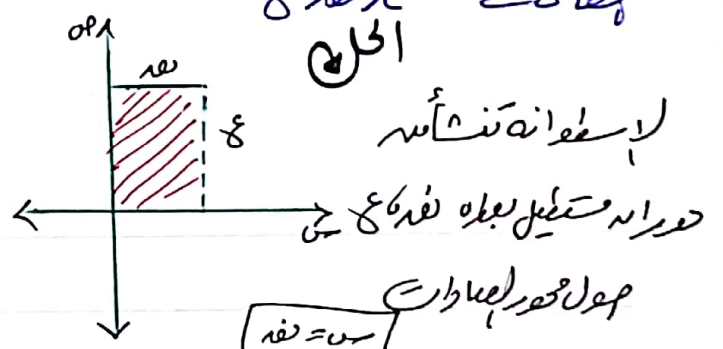 الحل
ص
نق
ع
س
الاسطوانة تنشأ من
دوران مستطيل بعداه نق، ع
حول محور الصادات
س = نق